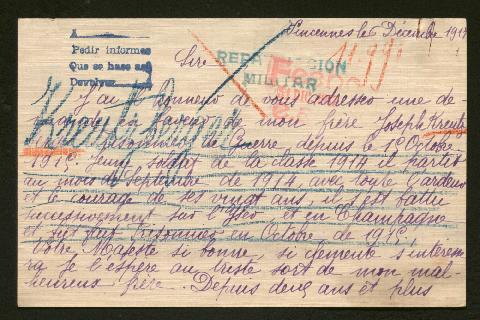 A
Pedir informes
Que se hace así
Devolver
Vincennes le 6 Décembre 1917
Sire
MILITAR
J'ai l'honneur de vous adresser une de-
mande en faveur de mon frère Joseph Kreutz
prisonnier de Guerre depuis le 1er Octobre
1915. Jeune soldat de la classe 1914 il partit
au mois de Septembre de 1914 avec toute l'ardeur
et le courage de ses vingt ans, il s'est battu
successivement sur l'Yser et en Champagne
et fut fait Prisonnier en Octobre de 1915.
Votre Majesté si bonne, si clémente s'intéres-
ra je l'espère au triste sort de mon mal-
heureux frère. Depuis deux ans et plus